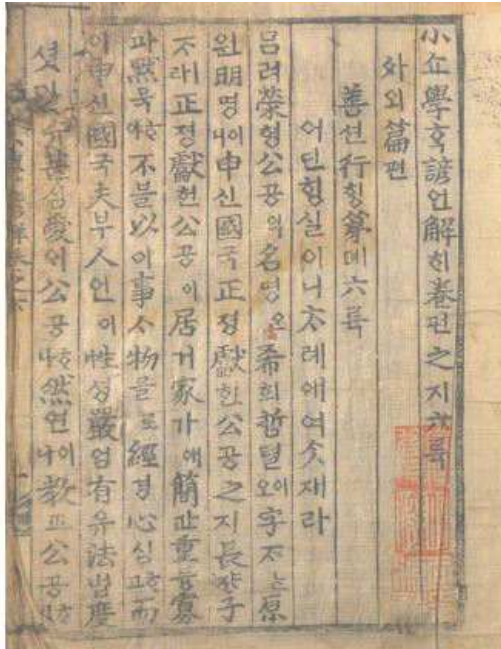 小쇼學ᄒᆞᆨ諺언解ᄒᆡ卷권之지六륙
外외篇편
善션行ᄒᆡᆼ第뎨六륙
어딘ᄒᆡᆼ실이니ᄎᆞ례예여ᄉᆞᆺ재라
呂려榮형公공의名명은希희哲텰이오字ᄌᆞᄂᆞᆫ原
원明명이니申신國국正졍獻헌公공之지長쟝子
ᄌᆞ라正졍獻헌公공이居거家가애簡간重듕寡
과黙묵ᄒᆞ야不블以이事ᄉᆞ物믈로經경心심ᄒᆞ고而
이申신國국夫부人인이性셩嚴엄有유法법度
公공ᄒᆞ나然연이나敎교公공호ᄃᆡ